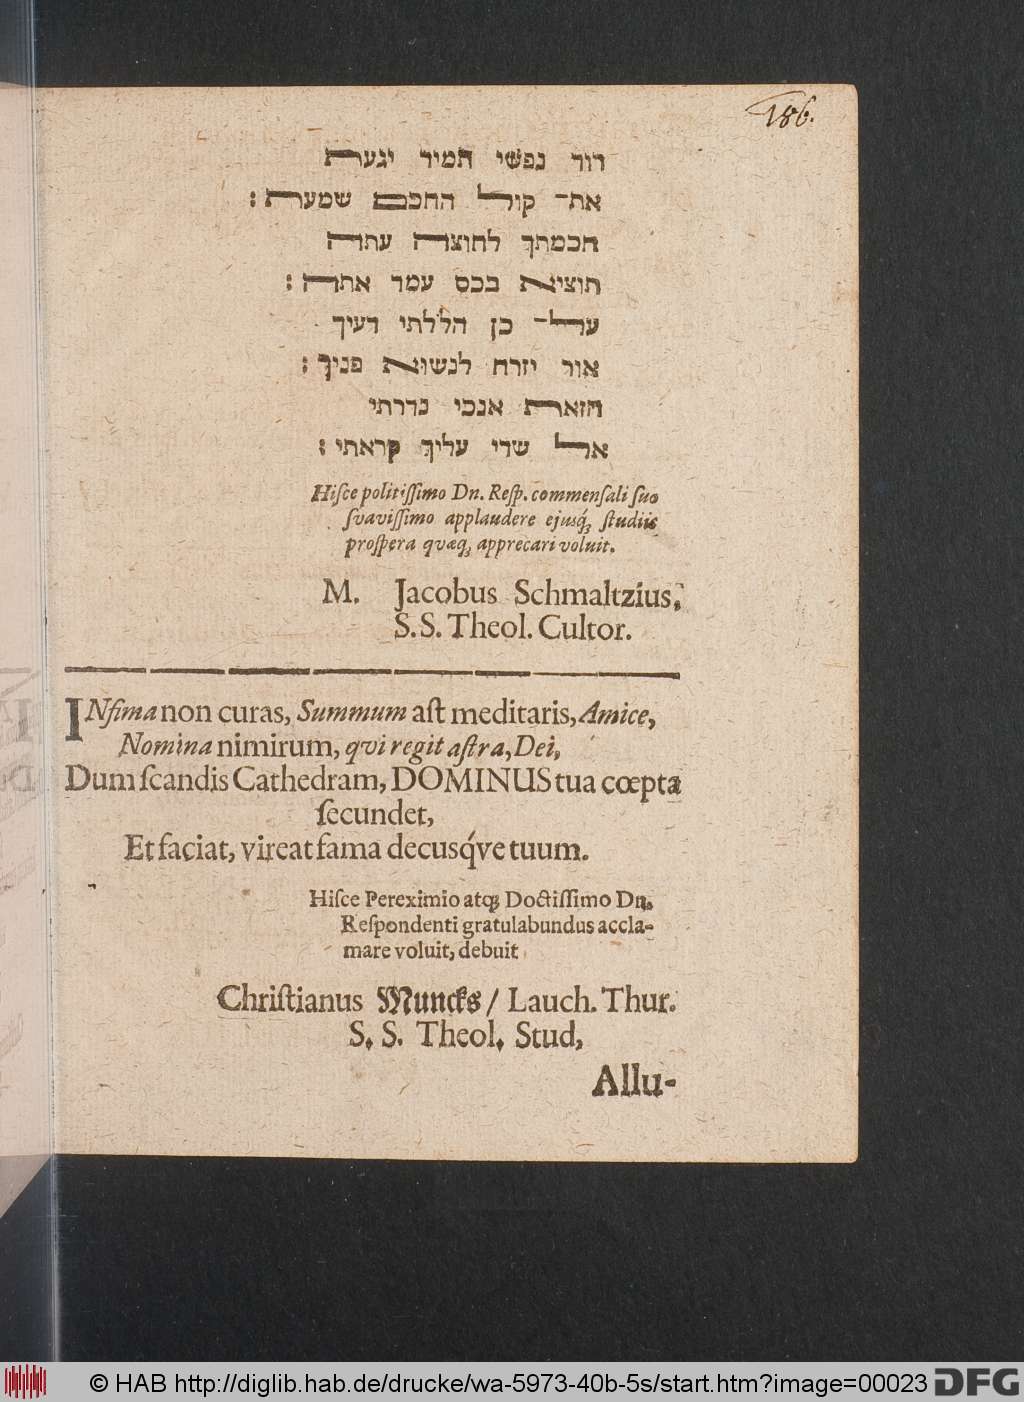 186.
דוד נפשי תמיד יגעת
את־ קול החכם שמעת :
חכמתך לחוצה עתה
תוציא בכס עמד אתה :
על־ כן הללתי דעיך
אור יזרח לנשוא פניך :
הזאת אנכי נדרתי
אל שדי עליך קראתי :
Hiſce politiſſimo Dn. Reſp. commenſali ſuo
ſvaviſſimo applaudere ejusq́ꝫ ſtudiis
proſpera quæqꝫ apprecari voluit.
M. Jacobus Schmaltzius,
S. S. Theol. Cultor.
INfima non curas, Summum aſt meditaris, Amice,
Nomina nimirum, qvi regit aſtra, Dei,
Dum ſcandis Cathedram, DOMINUS tua cœpta
ſecundet,
Et faciat, vireat fama decusq́ve tuum.
Hiſce Pereximio atqꝫ Doctiſſimo Dn.
Reſpondenti gratulabundus accla-
mare voluit, debuit
Chriſtianus Muncks / Lauch. Thur.
S. S. Theol. Stud,
Allu-
© HAB http://diglib.hab.de/drucke/wa-5973-40b-5s/start.htm?image=00023
DFG